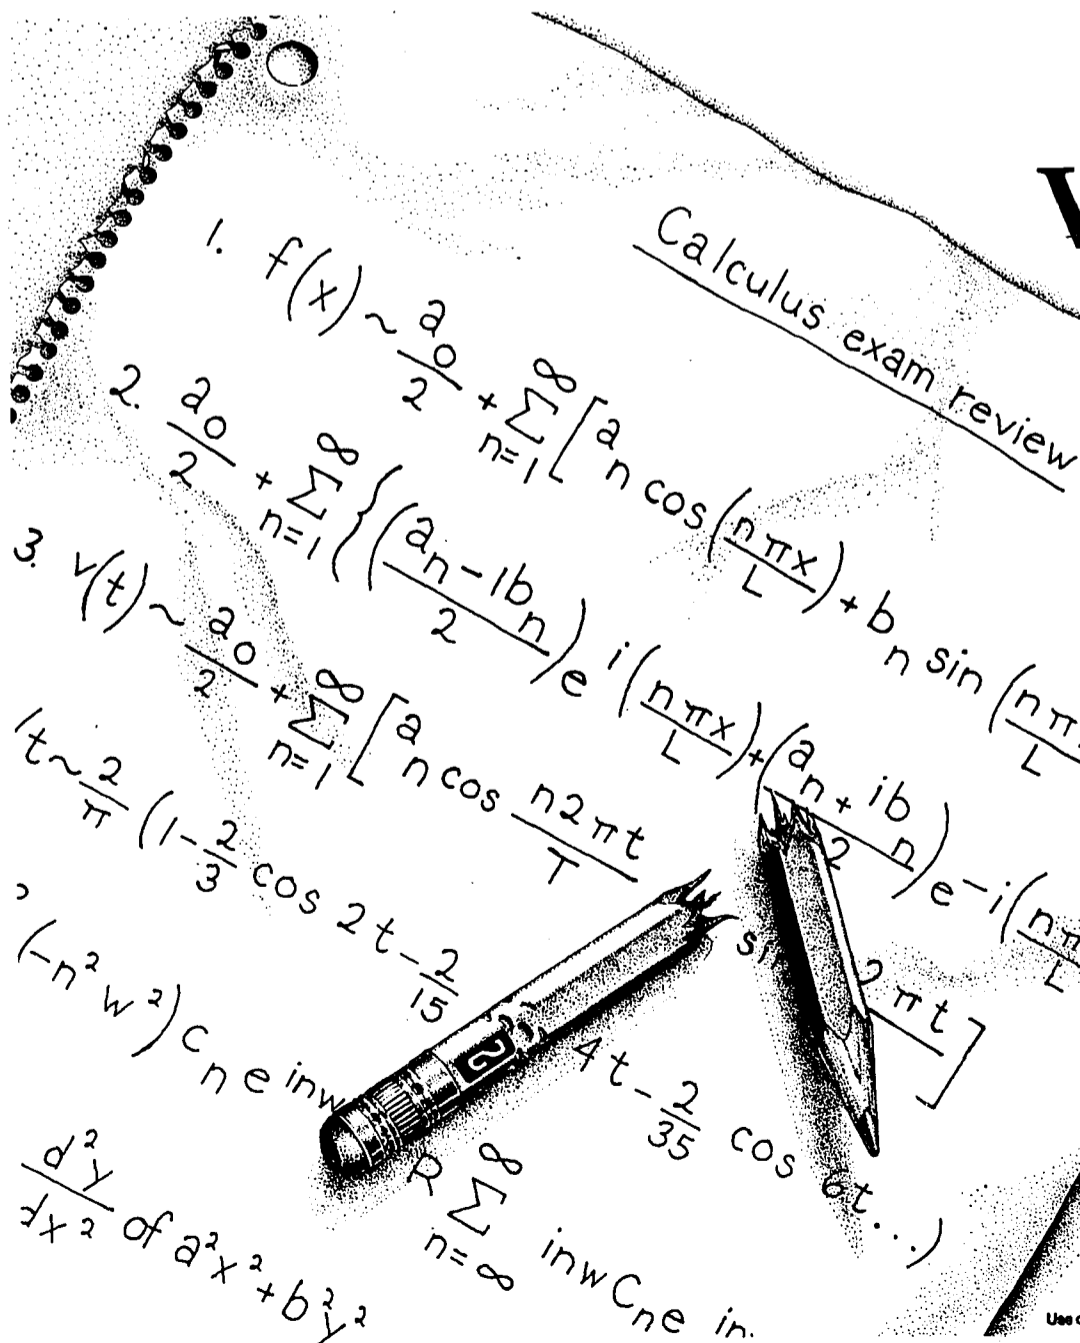 Calculus exam review
1. f(x) ~ a₀/2 + ∑ₙ₌₁^∞ [aₙ cos (nπx/L) + bₙ sin (nπ/L
2. a₀/2 + ∑ₙ₌₁^∞ {((aₙ - 1bₙ)/2) e^i(nπx/L) + ((aₙ + ibₙ)/2) e^-i(nπ/L
3. v(t) ~ a₀/2 + ∑ₙ₌₁^∞ [aₙ cos n2πt/T 2πt]
t ~ 2/π (1 - 2/3 cos 2t - 2/15 4t - 2/35 cos 6t...)
(-n²w²) Cₙe inw R ∑ₙ₌∞^∞ inwCₙe in
d²y/dx² of a²x² + b²y²
2